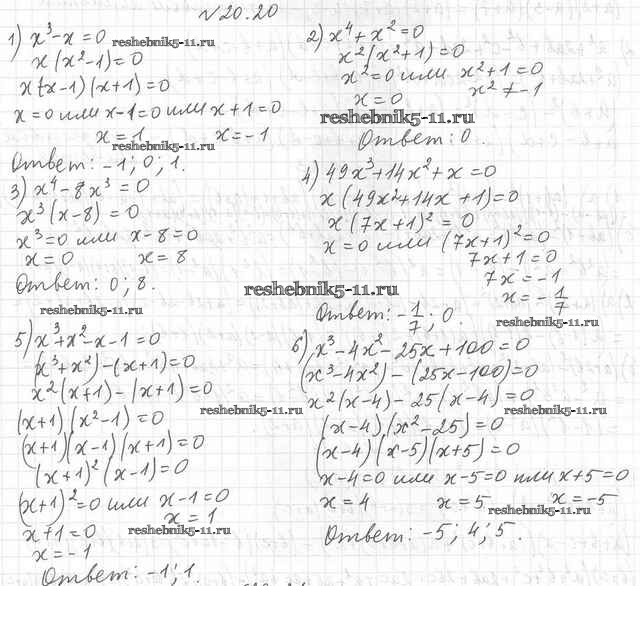 № 20.20
1) x³ - x = 0
x(x² - 1) = 0
x(x-1)(x+1) = 0
x = 0 или x - 1 = 0 или x + 1 = 0
x = 1 x = -1
Ответ: -1; 0; 1.
2) x⁴ + x² = 0
x²(x² + 1) = 0
x² = 0 или x² + 1 = 0
x = 0 x² ≠ -1
Ответ: 0.
3) x⁴ - 8x³ = 0
x³(x - 8) = 0
x³ = 0 или x - 8 = 0
x = 0 x = 8
Ответ: 0; 8.
4) 49x³ + 14x² + x = 0
x(49x² + 14x + 1) = 0
x(7x + 1)² = 0
x = 0 или (7x + 1)² = 0
7x + 1 = 0
7x = -1
x = -1/7
Ответ: -1/7; 0.
5) x³ + x² - x - 1 = 0
(x³ + x²) - (x + 1) = 0
x²(x + 1) - (x + 1) = 0
(x + 1)(x² - 1) = 0
(x + 1)(x - 1)(x + 1) = 0
(x + 1)²(x - 1) = 0
(x + 1)² = 0 или x - 1 = 0
x + 1 = 0 x = 1
x = -1
Ответ: -1; 1.
6) x³ - 4x² - 25x + 100 = 0
(x³ - 4x²) - (25x - 100) = 0
x²(x - 4) - 25(x - 4) = 0
(x - 4)(x² - 25) = 0
(x - 4)(x - 5)(x + 5) = 0
x - 4 = 0 или x - 5 = 0 или x + 5 = 0
x = 4 x = 5 x = -5
Ответ: -5; 4; 5.
reshebnik5-11.ru
reshebnik5-11.ru
reshebnik5-11.ru
reshebnik5-11.ru
reshebnik5-11.ru
reshebnik5-11.ru
reshebnik5-11.ru
reshebnik5-11.ru
reshebnik5-11.ru
reshebnik5-11.ru